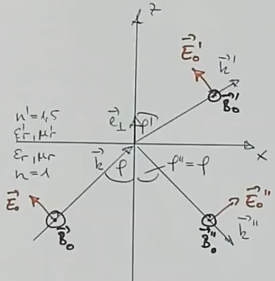 z
E₀'
k'
n' = 1,5
ε_r', μ_r'
e⊥
φ'
B₀'
x
ε_r, μ_r
n = 1
k
φ
φ'' = φ
E₀
E₀''
B₀
B₀''
k''